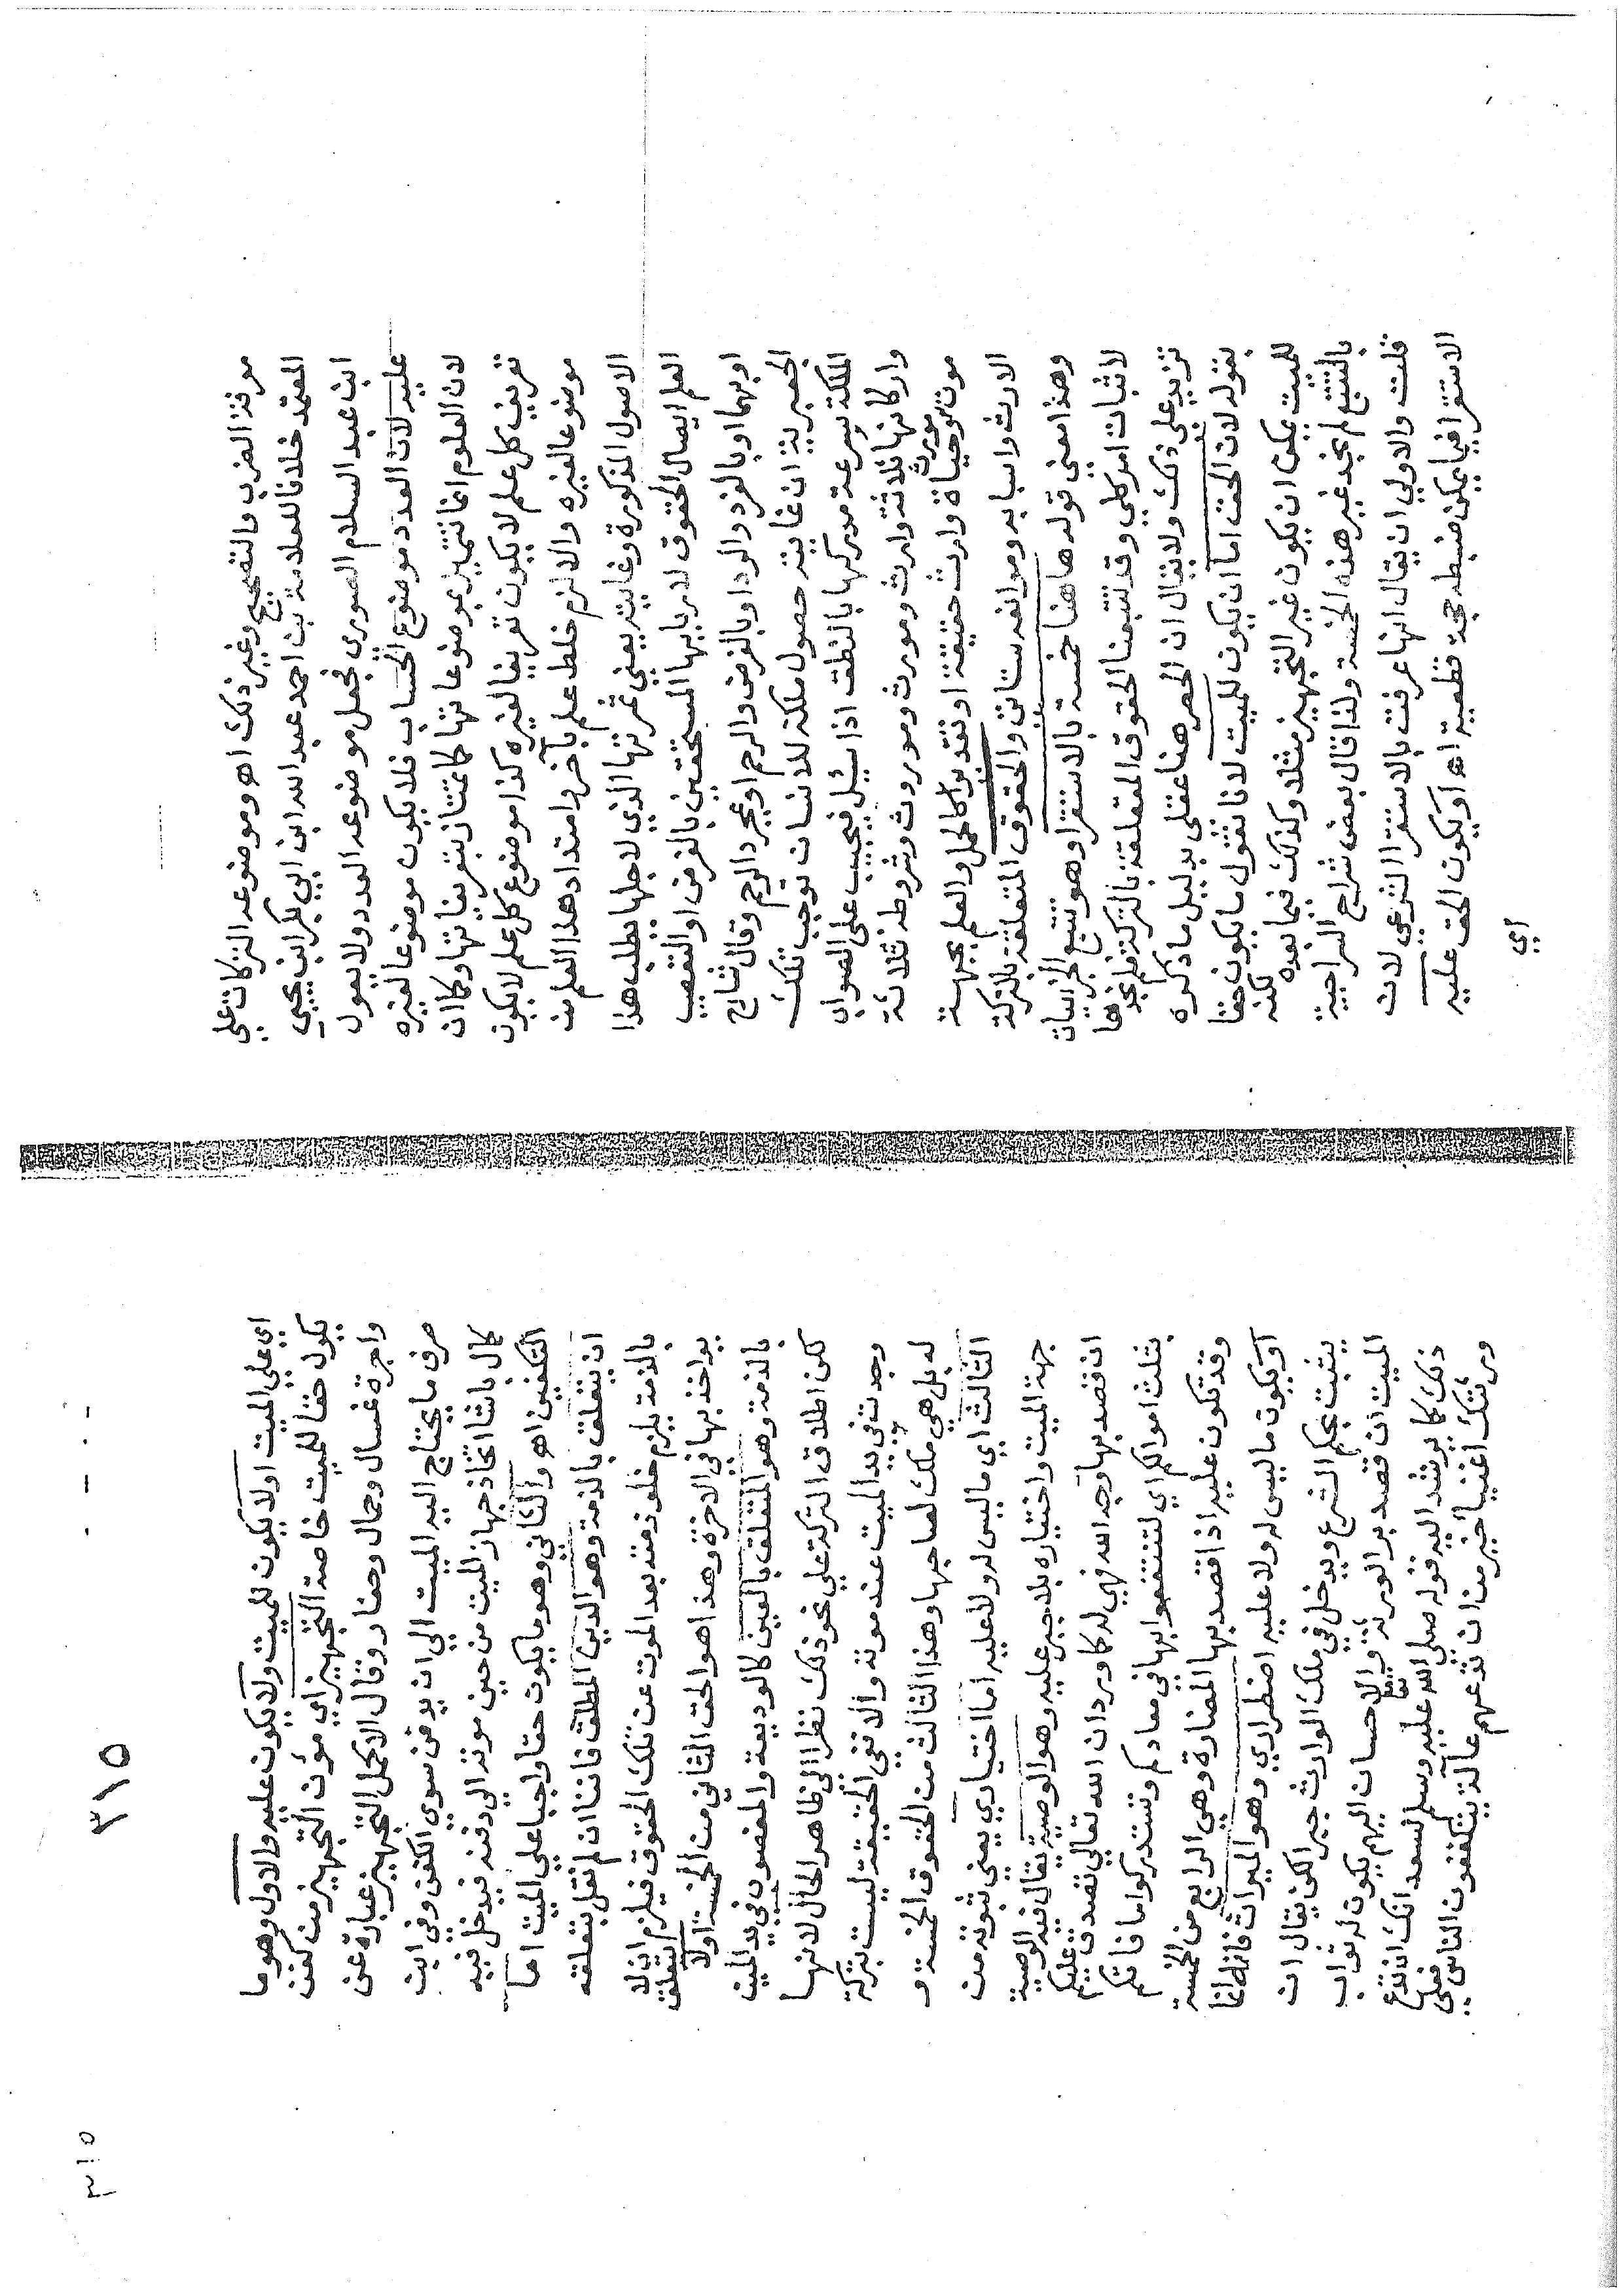 معرفة الضرب والتصحيح وغير ذلك اهـ وموضوعه التركات علي
المعتمد خلافا للعلامة بن احمد عبد الله ابن ابي بكر ابن يحيي
ابن عبد السلام الصوري فجعل موضوعه العدد ولا يعول
عليه لان العدد موضوع الحساب فلا يكون موضوعا لغيره
لان العلوم انما تتميز بموضوعاتها كما تمتاز بتعريفاتها وكما ان
تعريف كل علم لا يكون تعريفا لغيره كذا موضوع كل علم لا يكون
موضوعا لغيره والا لزم خلط علم بآخر وامتداد هذا العلم من
الاصول المذكورة وغايته يعني ثمرتها الذي لاجلها يطلب هذا
العلم ايصال الحقوق لاربابها المستحقين بالفرض او التعصيب
او بهما او بالفرد والردا وبالفرض والرحم او بمجرد الرحم وقال شارح
الجعبرية ان غايته حصول ملكة للانسان توجب تلك
الملكة سرعة مدركها بالنطق اذا سئل فيجيب علي الصواب
واركانها ثلاثة وارث ومورث وموروث وشروطه ثلاثة
موت مورث وحياة وارث حقيقة او تقديرا كالحمل والعلم بجهة
الارث واسبابه وموانعه ستاتي والحقوق المتعلقة بالتركة
وهذا معني قوله هاهنا خمسة بالاستقرا وهو تتبع الجزئيات
لاثبات امر كلي وقد تتبعنا الحقوق المتعلقة بالتركة فلم نجدها
تزيد علي ذلك ولا يقال ان الحصر هنا عقلي بدليل ما ذكره
بقوله لان الحق اما ان يكون للميت لانا نقول ما يكون حقا
للميت يمكن ان يكون غير التجهيز مثلا وكذلك فيما بعده لكنه
بالتتبع لم نجد غير هذه الخمسة ولذا قال بعض شراح السراجية
قلت والاولي ان يقال انها عرفت بالاستقرا الشرعي لان
الاستقرا فيما يمكن ضبطه حجة قطعية اهـ او يكون الحق عليه
اي
٣١٥
٣١٥
اي علي الميت اولا يكون للميت ولا يكون عليه والاول وهو ما
يكون حقا للميت خاصة التجهيز اي مؤن التجهيز من كفن
واجرة غسال وحمال وحفار وقال الاكمل التجهيز عبارة عن
صرف ما يحتاج اليه الميت الي ان يدفن سوي الكفن وفي ابن
كمال باشا اتخاذ جهاز الميت من حين موته الي دفنه فيدخل فيه
التكفين اهـ والثاني وهو ما يكون حقا واجبا علي الميت اما
ان يتعلق بالذمة وهو الدين المطلق فاننا ان لم نقل بتعلقه
بالذمة يلزم خلو ذمته بعد الموت عن تلك الحقوق فيلزم ان لا
يواخذ بها في الاخرة وهذا هو الحق الثاني من الخمسة اولا يتعلق
بالذمة وهو المتعلق بالعين كالوديعة والمغصوب في يد الميت
لكن اطلاق التركة علي نحو ذلك نظرا الي ظاهر الحال لانها
وجدت في يد الميت عند موته والا ففي الحقيقة ليست بتركة
له بل هي ملك لصاحبها وهذا الثالث من الحقوق الخمسة و
الثالث اي ما ليس له ولا عليه اما اختياري يعني ثبوته من
جهة الميت واختياره بلا جبر عليه وهو الوصية يقال فيه الوصية
ان قصد بها وجه الله فهي له كما ورد ان الله تعالي تصدق عليكم
بثلث اموالكم اي لتنتفعوا بها في معادكم وتستدركوا ما فاتكم
وقد تكون عليه اذا قصد بها المضارة وهي الرابع من الخمسة
او يكون ما ليس له ولا عليه اضطراري وهو الميراث فانه انما
يثبت بحكم الشرع ويدخل في ملك الوارث جبرا لكن يقال ان
الميت ان قصد به الورثة والاحسان اليهم يكون له ثواب
ذلك كما يرشد اليه قوله صلي الله عليه وسلم لسعد انك ان تدع
ورثتك اغنيا خير من ان تدعهم عالة يتكففون الناس فعلي